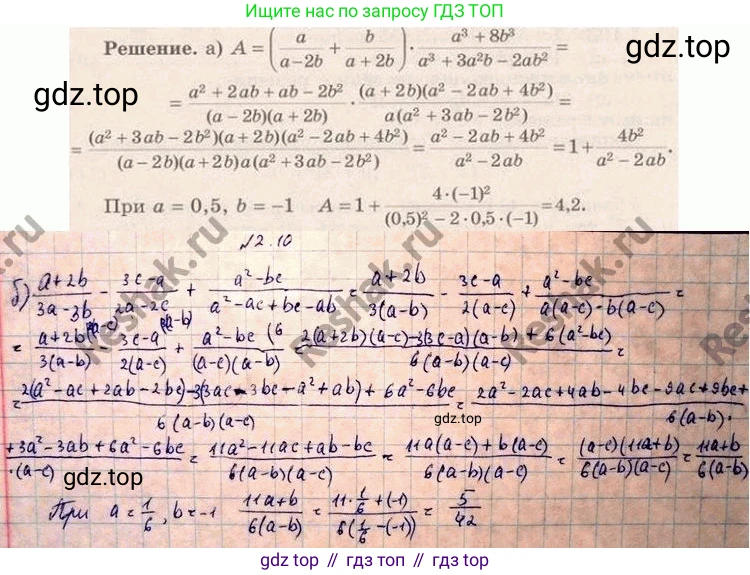 Ищите нас по запросу ГДЗ ТОП
Решение. а) A = (a/(a−2b) + b/(a+2b)) · (a³ + 8b³)/(a³ + 3a²b − 2ab²) =
gdz.top
gdz.top
= (a² + 2ab + ab − 2b²)/((a − 2b)(a + 2b)) · ((a + 2b)(a² − 2ab + 4b²))/(a(a² + 3ab − 2b²)) =
= ((a² + 3ab − 2b²)(a + 2b)(a² − 2ab + 4b²))/((a − 2b)(a + 2b)a(a² + 3ab − 2b²)) = (a² − 2ab + 4b²)/(a² − 2ab) = 1 + 4b²/(a² − 2ab).
При a = 0,5, b = −1 A = 1 + (4 · (−1)²)/((0,5)² − 2 · 0,5 · (−1)) = 4,2.
Reshak.ru
Reshak.ru
Reshak.ru
№2.10
б) (a+2b)/(3a−3b) − (3c−a)/(2a−2c) + (a²−bc)/(a²−ac+bc−ab) = (a+2b)/(3(a−b)) − (3c−a)/(2(a−c)) + (a²−bc)/(a(a−c)−b(a−c)) =
= (a+2b)/(3(a−b)) − (3c−a)/(2(a−c)) + (a²−bc)/((a−c)(a−b)) (6 = (2(a+2b)(a−c)−3(3c−a)(a−b)+6(a²−bc))/(6(a−b)(a−c)) =
= (2(a²−ac+2ab−2bc)−3(3ac−3bc−a²+ab)+6a²−6bc)/(6(a−b)(a−c)) = (2a²−2ac+4ab−4bc−9ac+9bc+)/(6(a−b)·
gdz.top
+3a²−3ab+6a²−6bc/·(a−c) = (11a²−11ac+ab−bc)/(6(a−b)(a−c)) = (11a(a−c)+b(a−c))/(6(a−b)(a−c)) = ((a−c)(11a+b))/(6(a−b)(a−c)) = (11a+b)/(6(a−b)
gdz.top
gdz.top
При a = 1/6, b = −1 (11a+b)/(6(a−b)) = (11·1/6+(−1))/(6(1/6−(−1))) = 5/42
gdz.top // гдз.топ // gdz.top